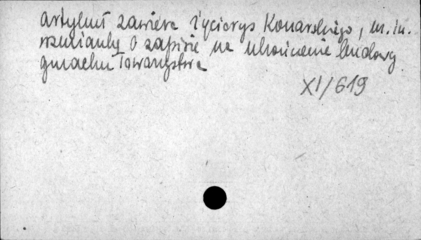 artykuł zawiera życiorys Konarskiego, m.in.
wzmiankę o zapisie na ukończenie budowy
gmachu Towarzystwa
XI/619